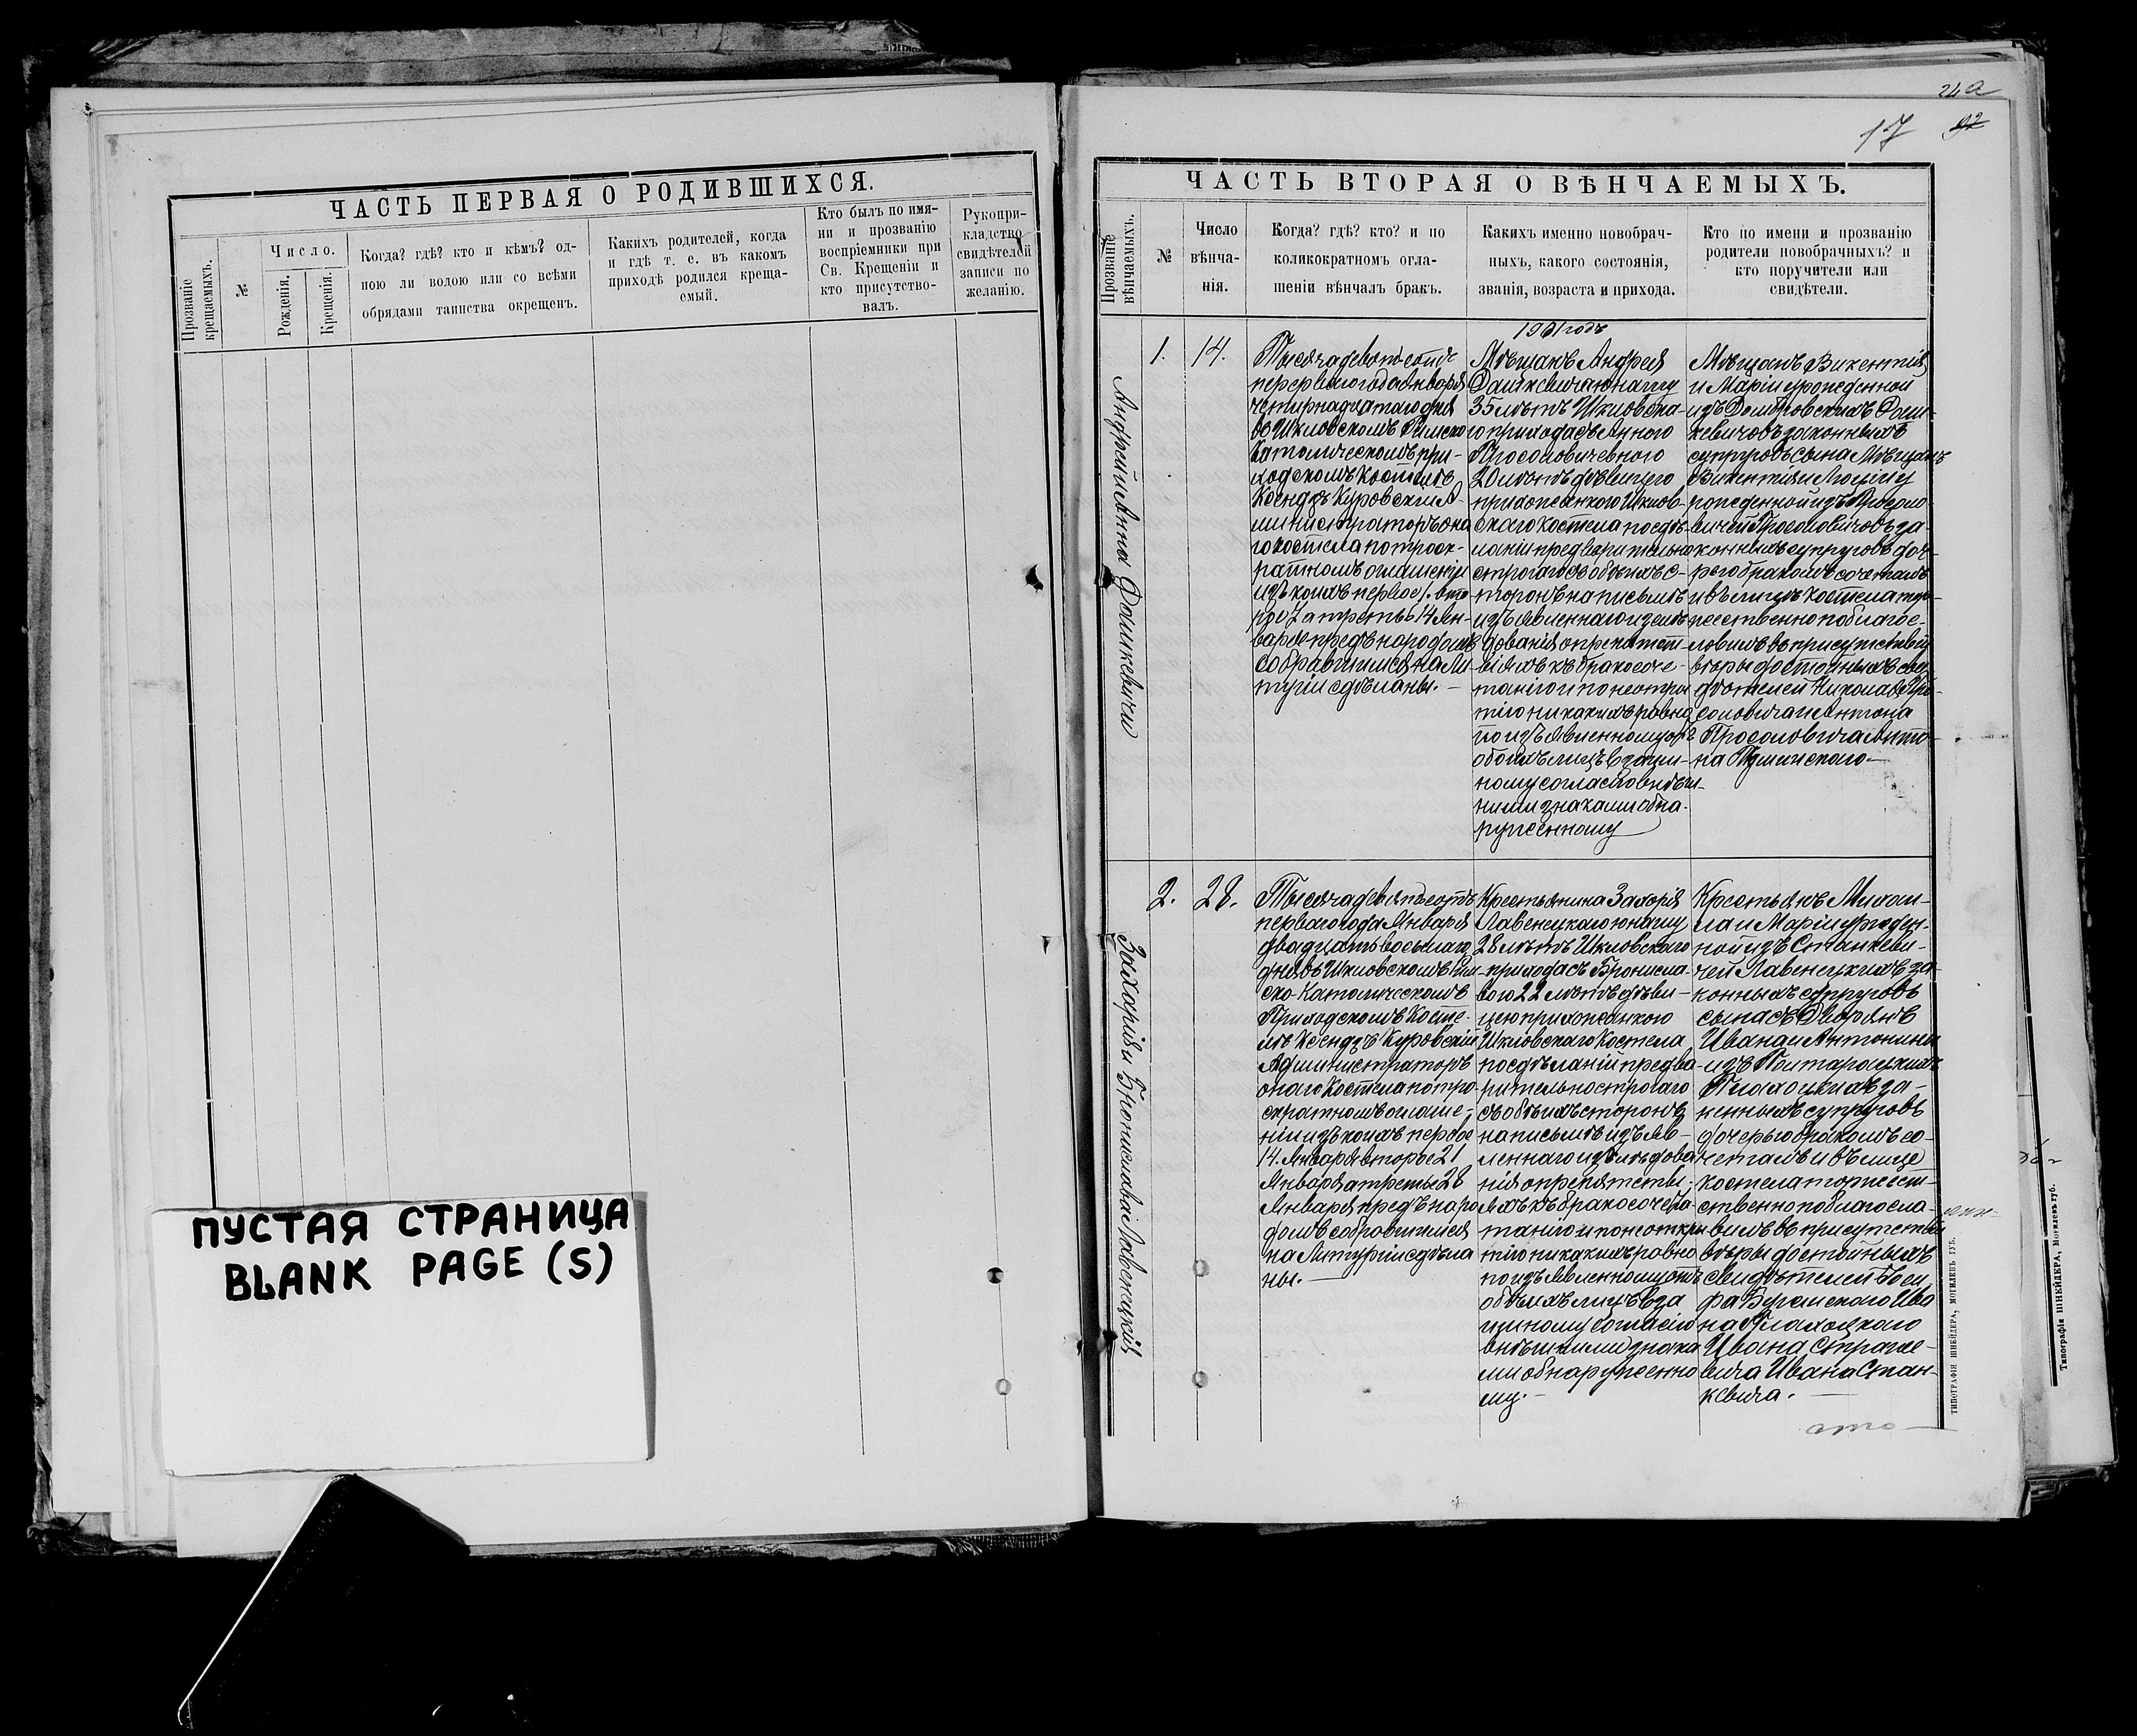 ЧАСТЬ ПЕРВАЯ О РОДИВШИХСЯ.
Прозваніе крещаемыхъ.
№
Число.
Рожденія.
Крещенія.
Когда? гдѣ? кто и кѣмъ? од-
ною ли водою или со всѣми
обрядами таинства окрещенъ.
Какихъ родителей, когда
и гдѣ т. е. въ какомъ
приходѣ родился креща-
емый.
Кто былъ по имя-
ни и прозванію
воспріемники при
Св. Крещеніи и
кто присутство-
валъ.
Рукопри-
кладство
свидѣтелей
записи по
желанію.
ПУСТАЯ СТРАНИЦА
BLANK PAGE (S)
24а
17 92
ЧАСТЬ ВТОРАЯ О ВѢНЧАЕМЫХЪ.
Прозваніе вѣнчаемыхъ.
№
Число
вѣнча-
нія.
Когда? гдѣ? кто? и по
коликократномъ огла-
шеніи вѣнчалъ бракъ.
Какихъ именно новобрач-
ныхъ, какого состоянія,
званія, возраста и прихода.
Кто по имени и прозванію
родители новобрачныхъ? и
кто поручители или
свидѣтели.
1901 годъ
Андрей и Анна Дашкевичи
1.
14.
Тысяча девятьсотъ
первого года Января
четырнадцатого дня
въ Шкловскомъ Римско
Католическомъ при-
ходскомъ Костелѣ
Ксендзъ Куровскій Ад-
министраторъ она
го костела по троек-
ратномъ оглашеніи
изъ коихъ первое 1. вто-
рое 7 а третье 14 Ян-
варя предъ народомъ
собравшимся на Ли-
тургіи сдѣланы. —
Мѣщанъ Андрея
Дашкевича юношу
35 лѣтъ Шкловска-
го прихода съ Анною
Просоловичевною
20 лѣтъ дѣвицею
прихожанкою Шклов-
скаго костела по сдѣ-
ланіи предварительно
строгаго съ обѣихъ с-
торонъ на письмѣ
изъявленнаго изслѣ
дованія о препятст-
віяхъ къ бракосоче-
танію и по неоткры
тію никакихъ равно
по изъявленному отъ
обоихъ лицъ взаим-
ному согласію внѣш-
ними знаками обна-
руженному
Мѣщанъ Викентія
и Маріи урожденной
изъ Домбровскихъ Даш-
кевичовъ законныхъ
супруговъ сына Мѣщанъ
Викентія и Люціи у
рожденной изъ Просоло-
вичей Просоловичовъ за-
конныхъ супруговъ доч-
рью бракомъ сочеталъ
и въ лицѣ Костела тор-
жественно поблагос-
ловилъ въ присутствіи
вѣры достойныхъ сви
дѣтелей Николая Про-
соловича и Антона
Просоловича Анто-
на
Захарія и Бронислава Лавенецкія
2.
28.
Тысяча девятьсотъ
первого года Января
двадцать восьмаго
дня въ Шкловскомъ Рим-
ско-Католическомъ
Приходскомъ Косте-
лѣ Ксендзъ Куровскій
Администраторъ
онаго Костела по трое
скратномъ оглаше-
ніи изъ коихъ первое
14 Января второе 21
Января а третье 28
Января предъ наро
домъ собравшимся
на Литургіи сдѣла
ны. —
Крестьянина Захарія
Лавенецкаго юношу
28 лѣтъ Шкловскаго
прихода съ Бронисла-
вою 22 лѣтъ дѣви-
цею прихожанкою
Шкловскаго Костела
по сдѣланіи предва-
рительно строгаго
съ обѣихъ сторонъ
на письмѣ изъяв-
леннаго изслѣдова
нія о препятстві-
яхъ къ бракосоче-
танію и по неоткры
тію никакихъ равно
по изъявленному отъ
обѣихъ лицъ вза
имному согласію
внѣшними знака
ми обнаруженно
му. —
Крестьянъ Михаи-
ла и Маріи урожден-
ной изъ Станкеви-
чей Лавенецкихъ за-
конныхъ супруговъ
сына съ Дворянъ
Ивана и Антонины
изъ
за-
конныхъ супруговъ
дочерью бракомъ со-
четалъ и въ лицѣ
костела торжест-
ственно поблагосло-
вилъ въ присутствіи
вѣры достойныхъ
свидѣтелей Іоси
фа Ива
на
Ивана
вича Ивана Стан-
кевича. —
ТИПОГРАФІЯ ШНЕЙДЕРА, МОГИЛЕВЪ ГУБ.
Типографія ШНЕЙДЕРА, Могилевъ губ.